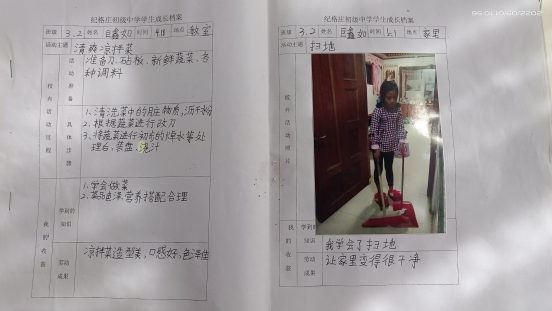 纪格庄初级中学学生成长档案
班级 3.2 姓名 时间 4.8 地点 教室
活动主题 清爽凉拌菜
校内活动过程
活动准备
准备刀、砧板、新鲜蔬菜、各
种调料
具体步骤
1.清洗菜中的脏物质,沥干水份
2.根据蔬菜进行改刀
3.将蔬菜进行初步的焯水等处
理后,装盘、浇汁
我的收获
学到的知识
1.学会做菜
2.菜品色泽、营养搭配合理
劳动成果
凉拌菜造型美,口感好,色泽佳
纪格庄初级中学学生成长档案
班级 3.2 姓名 时间 地点 家里
活动主题 扫地
校外活动照片
我的收获
学到的知识
我学会了扫地
劳动成果
让家里变得很干净